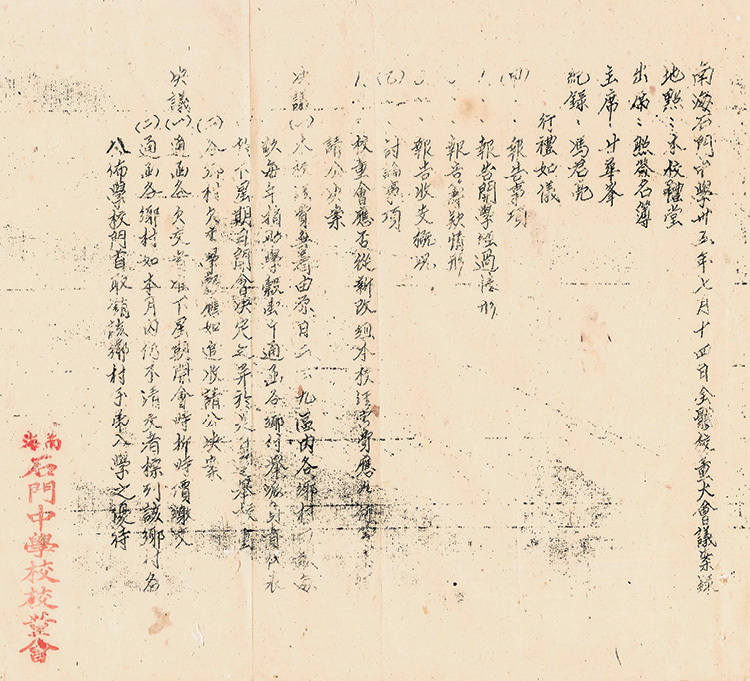 南海石門中學卅五年七月十四日全體校董大會議案錄
地點：本校禮堂
出席：照簽名簿
主席：廿華峯
紀錄：馮君亮
行禮如儀
(甲)報告事項
1、報告開學經過情形
2、報告籌款情形
3、報告收支概況
(乙)討論事項
1、校董會應否從新改組本校經常費應如
請公決案
決議(一)本校經費無着由原日二三九區內各鄉村
每年捐助學穀 通函各鄉村舉派負責代表
於下星期日開會決定之
各鄉村欠交學穀應如追收請公決案
決議(一)通函各欠交者在下星期開會時折時價繳交
(二)通函各鄉村如本月內仍不清交者標列該鄉村名
公佈學校門首取銷該鄉村子弟入學之優待
南海石門中學校校董會